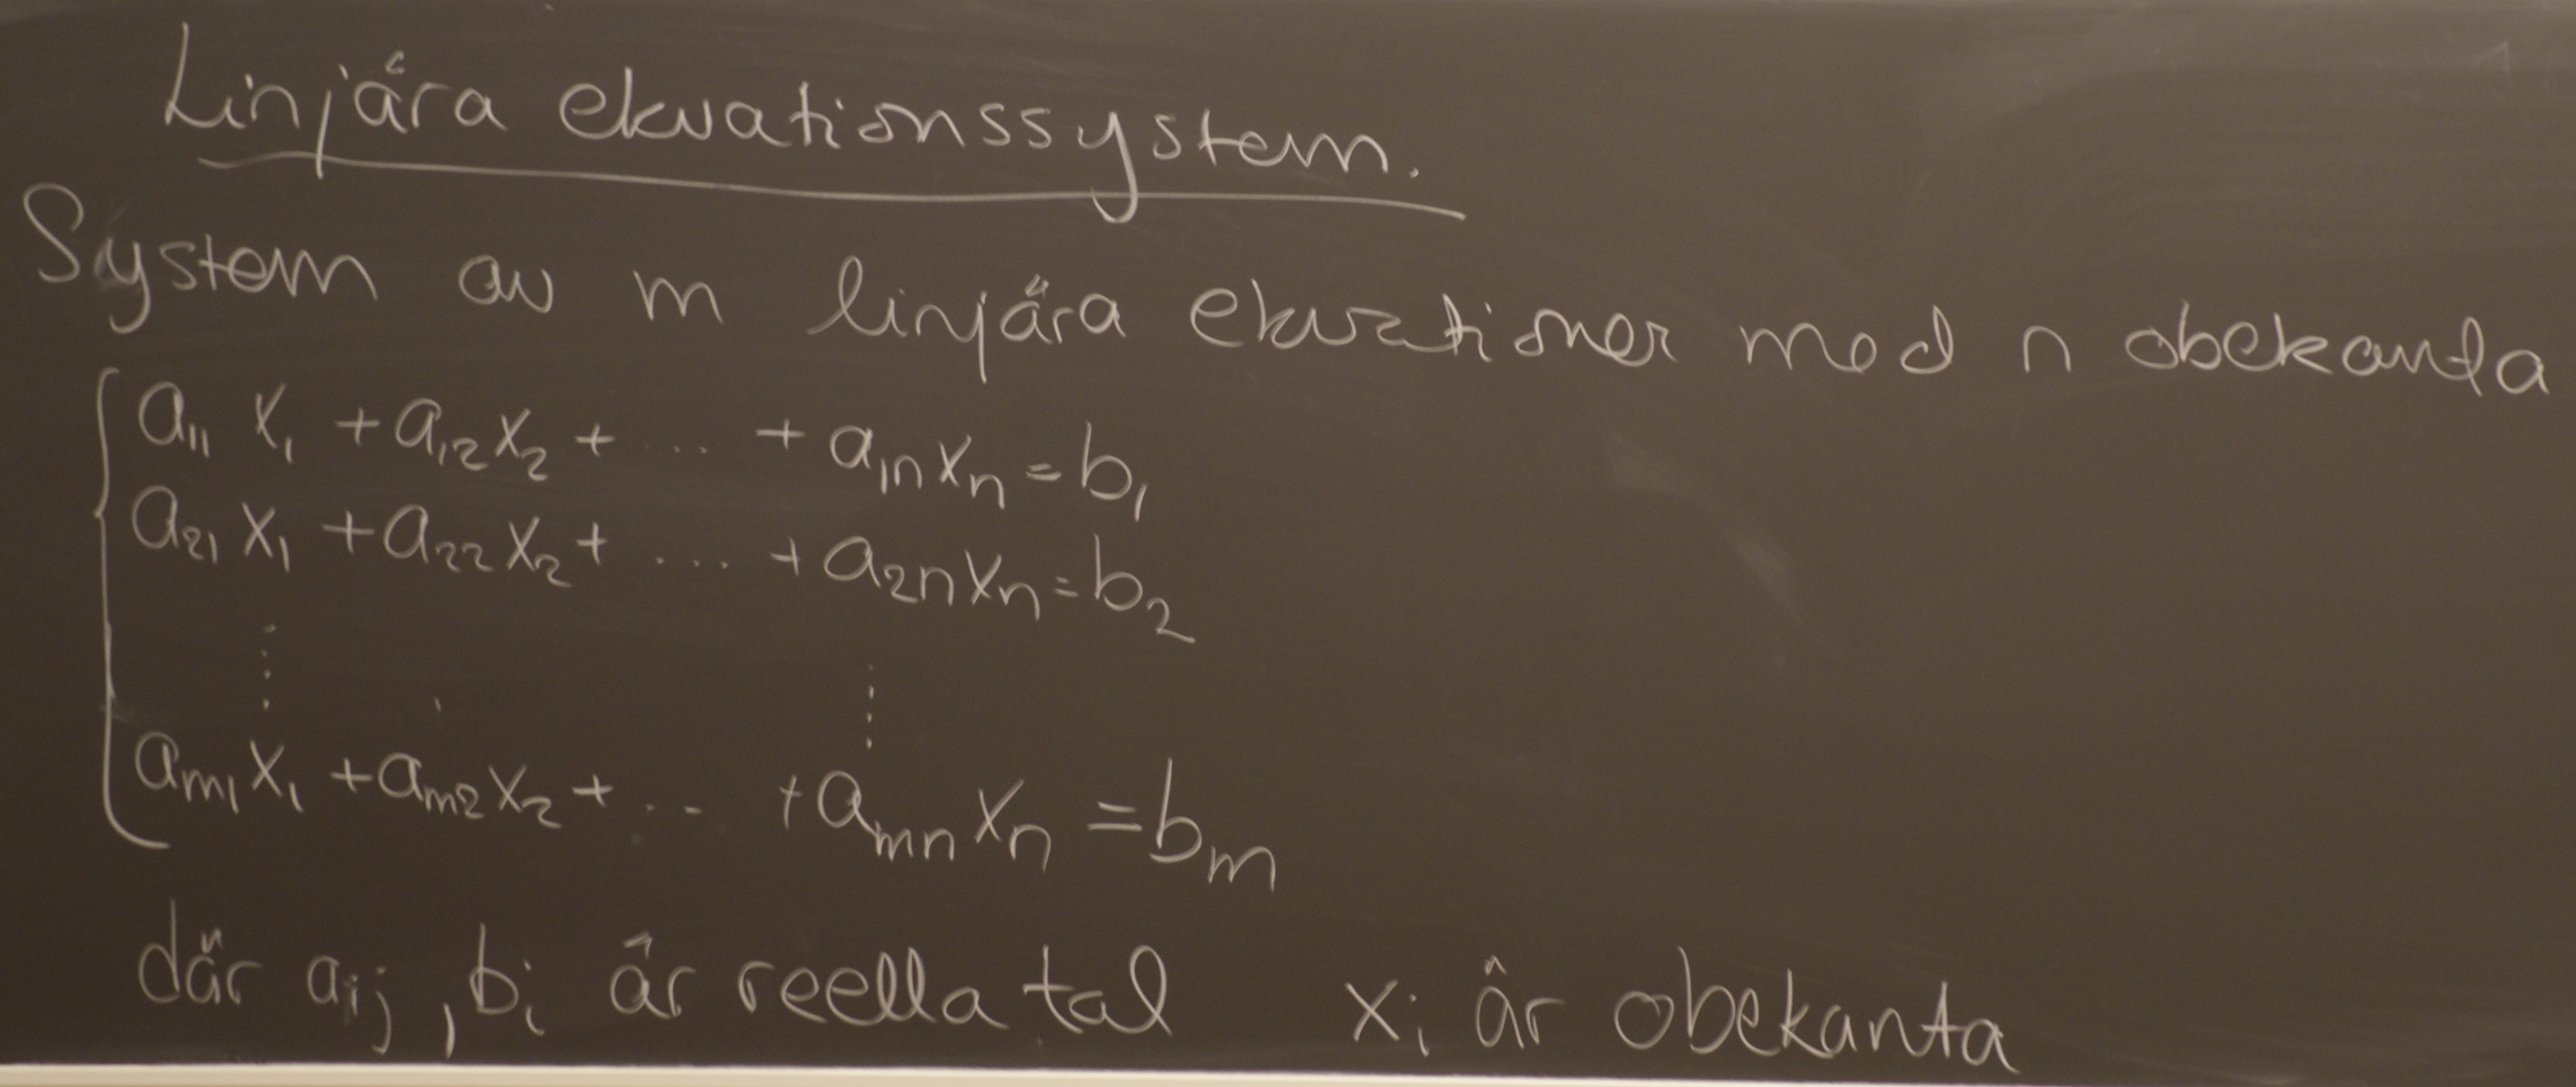 Linjära ekvationssystem.
System av m linjära ekvationer med n obekanta
a₁₁ x₁ + a₁₂x₂ + ... + a₁ₙxₙ = b₁
a₂₁ x₁ + a₂₂x₂ + ... + a₂ₙxₙ = b₂
⋮ ⋮
aₘ₁x₁ + aₘ₂x₂ + ... + aₘₙxₙ = bₘ
där aᵢⱼ, bᵢ är reella tal xᵢ är obekanta